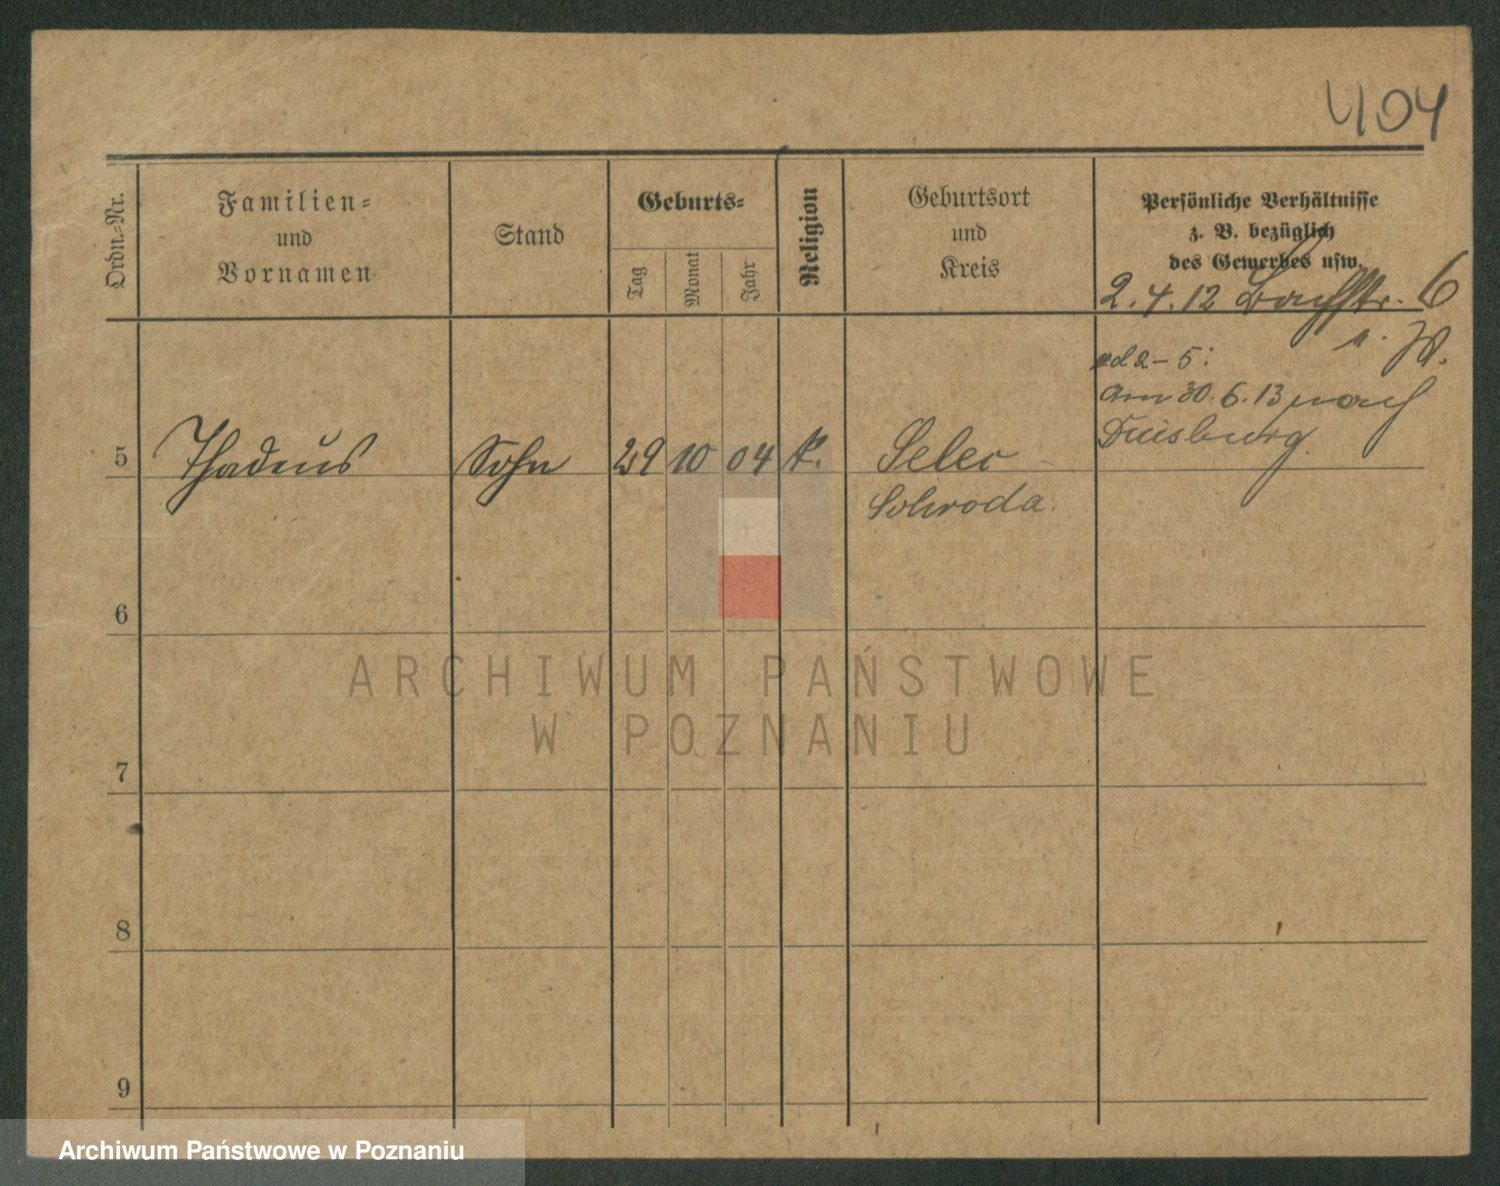 404
Ordn.-Nr.
Familien-
und
Vornamen
Stand
Geburts-
Tag
Monat
Jahr
Religion
Geburtsort
und
Kreis
Persönliche Verhältnisse
z. B. bezüglich
des Gewerbes usw.
2.4.12 6
ad 2-5:
am 30.6.13 nach
Duisburg.
5 Thadeus Sohn 29 10 04 k. Selec
Schroda.
6
7
8
9
ARCHIWUM PAŃSTWOWE
W POZNANIU
Archiwum Państwowe w Poznaniu